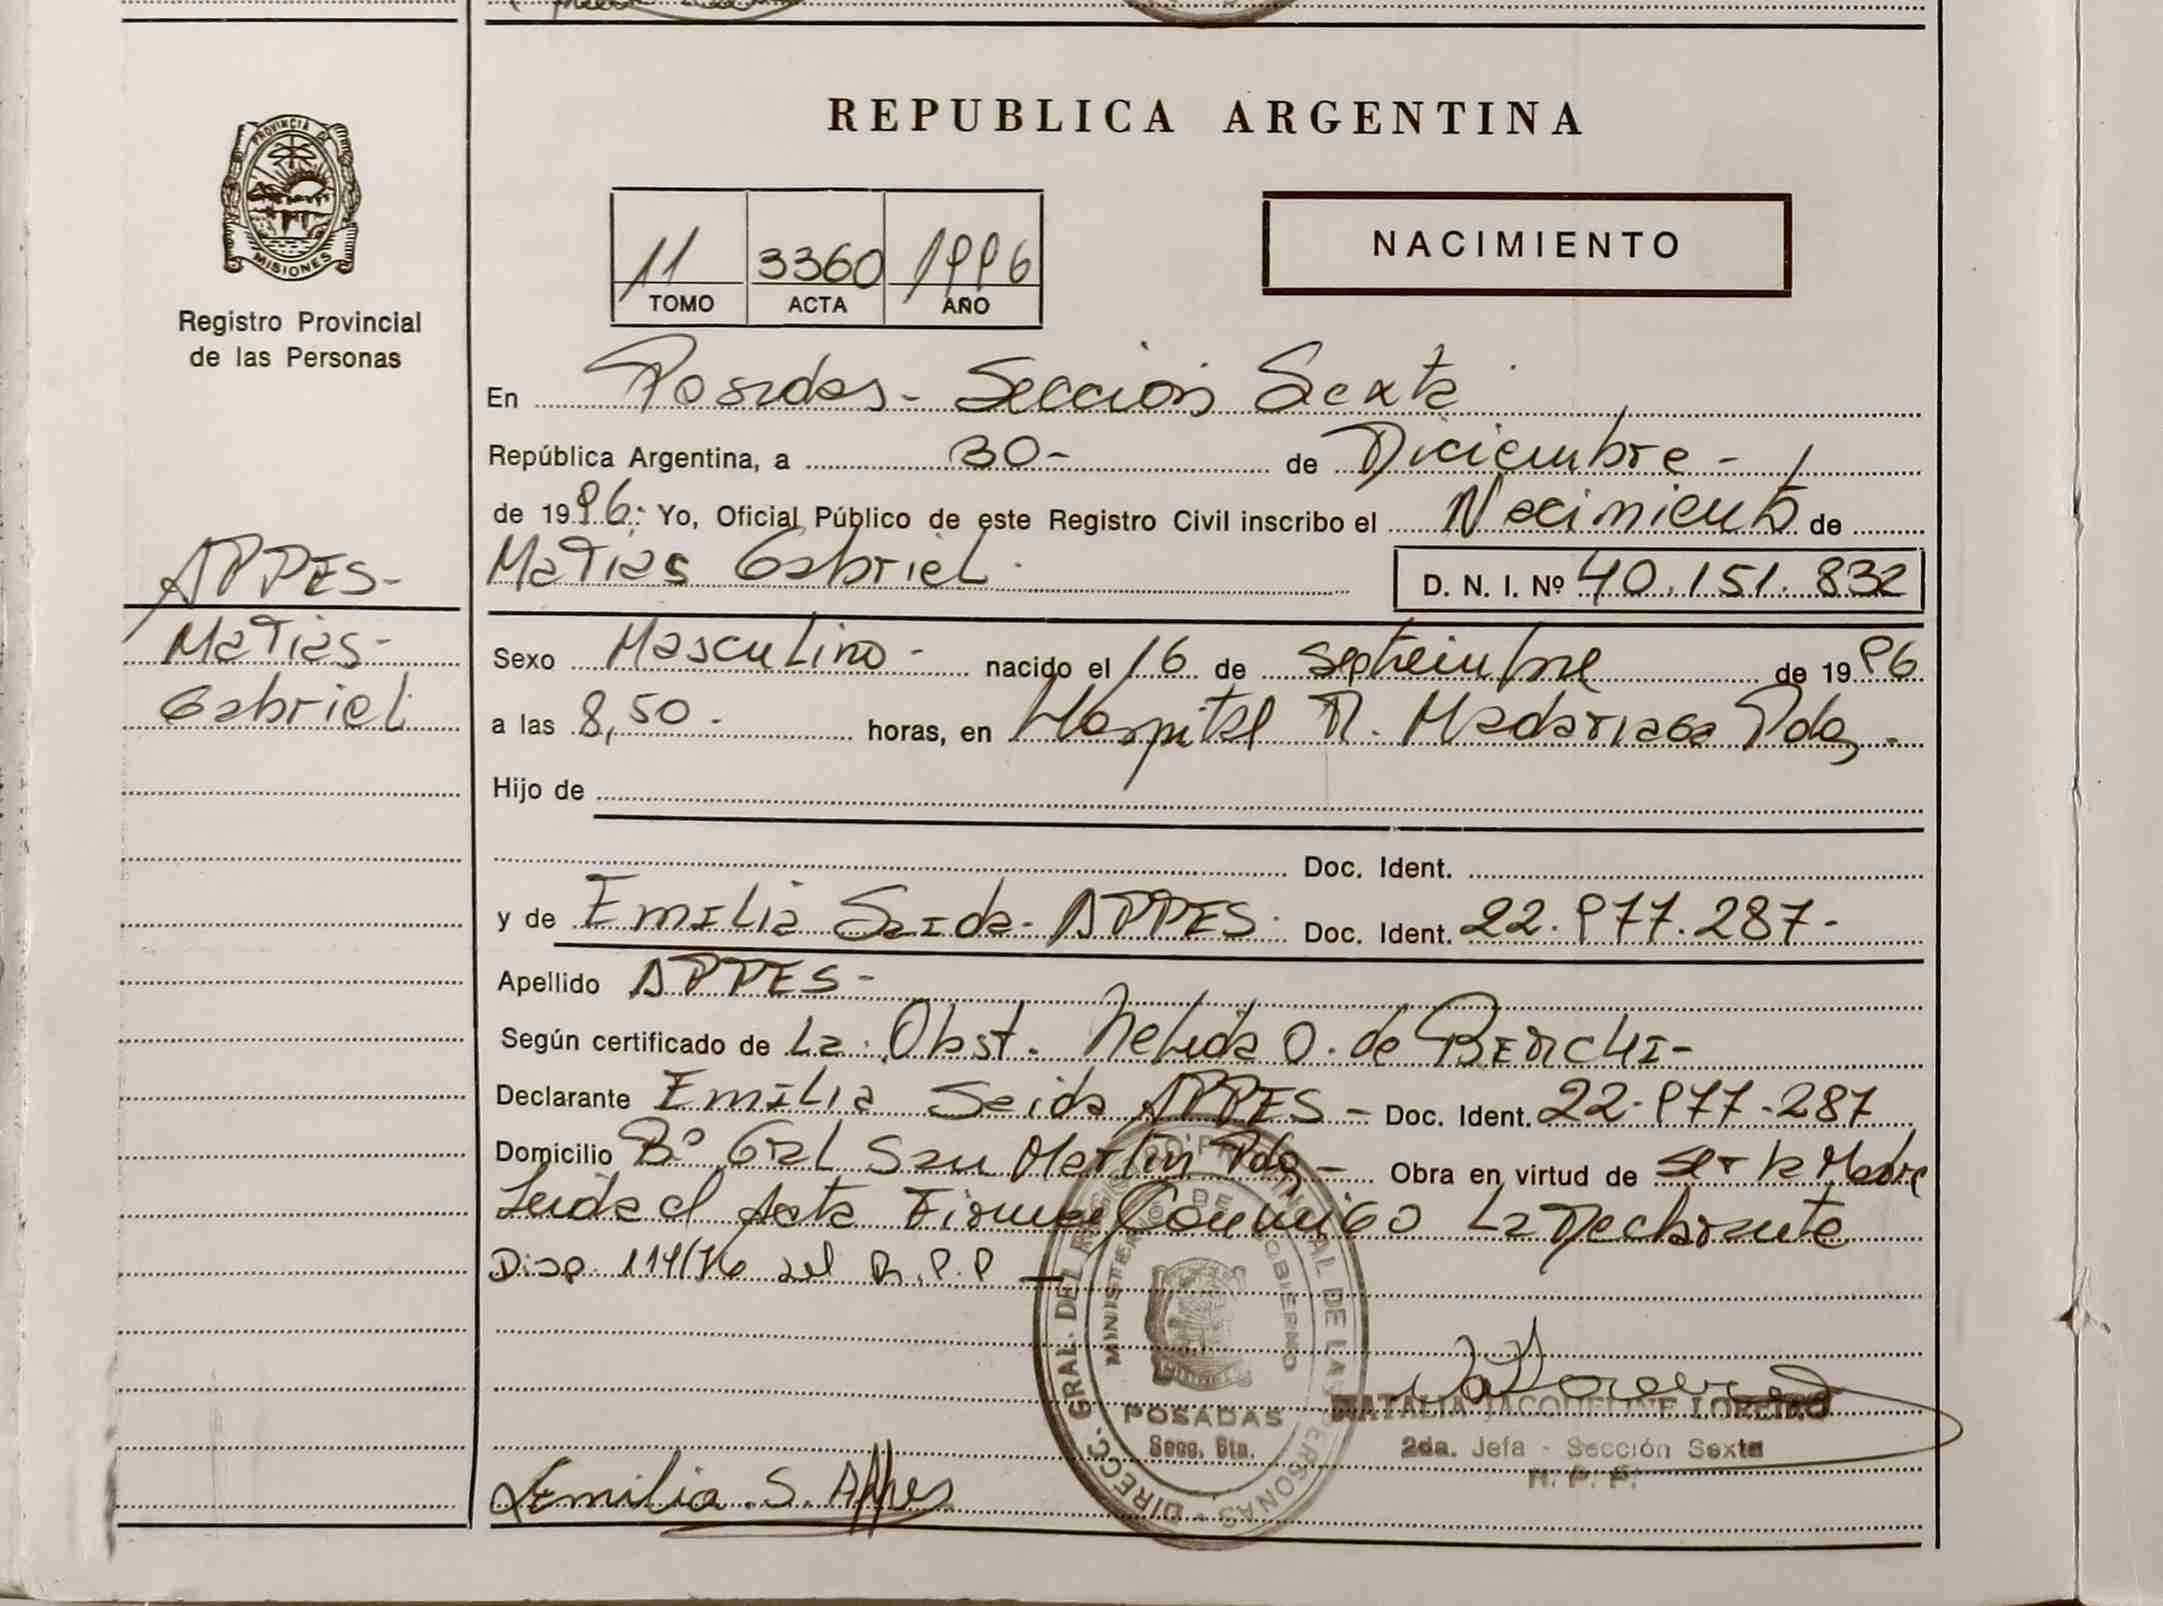 REPUBLICA ARGENTINA
PROVINCIA DE
MISIONES
Registro Provincial
de las Personas
11 3360 1996
TOMO ACTA AÑO
NACIMIENTO
En Posadas - Sección Sexta
República Argentina, a 30 - de Diciembre -
de 1996. Yo, Oficial Público de este Registro Civil inscribo el Nacimiento de
Matias Gabriel.
D. N. I. Nº 40.151.832
APPES -
Matias -
Gabriel
Sexo Masculino - nacido el 16 de septiembre de 1996
a las 8,50. horas, en Hospital R. Madariaga Pdas -
Hijo de
Doc. Ident.
y de Emilia Saida APPES. Doc. Ident. 22.977.287-
Apellido APPES -
Según certificado de La Obst. Nelida O. de
Declarante Emilia Saida APPES - Doc. Ident. 22.977.287
Domicilio Bº Gral San Martin Pdas - Obra en virtud de ser la Madre
Leida el Acta Firma Conmigo La Declarante
Disp. 114/76 del R.P.P -
DIRECC. GRAL. DEL REGISTRO PROVINCIAL DE LAS PERSONAS
MINISTERIO DE GOBIERNO
POSADAS
Secc. 6ta.
NATALIA JACQUELINE LOREIRO
2da. Jefa - Sección Sexta
R. P. P.
Emilia S. Appes